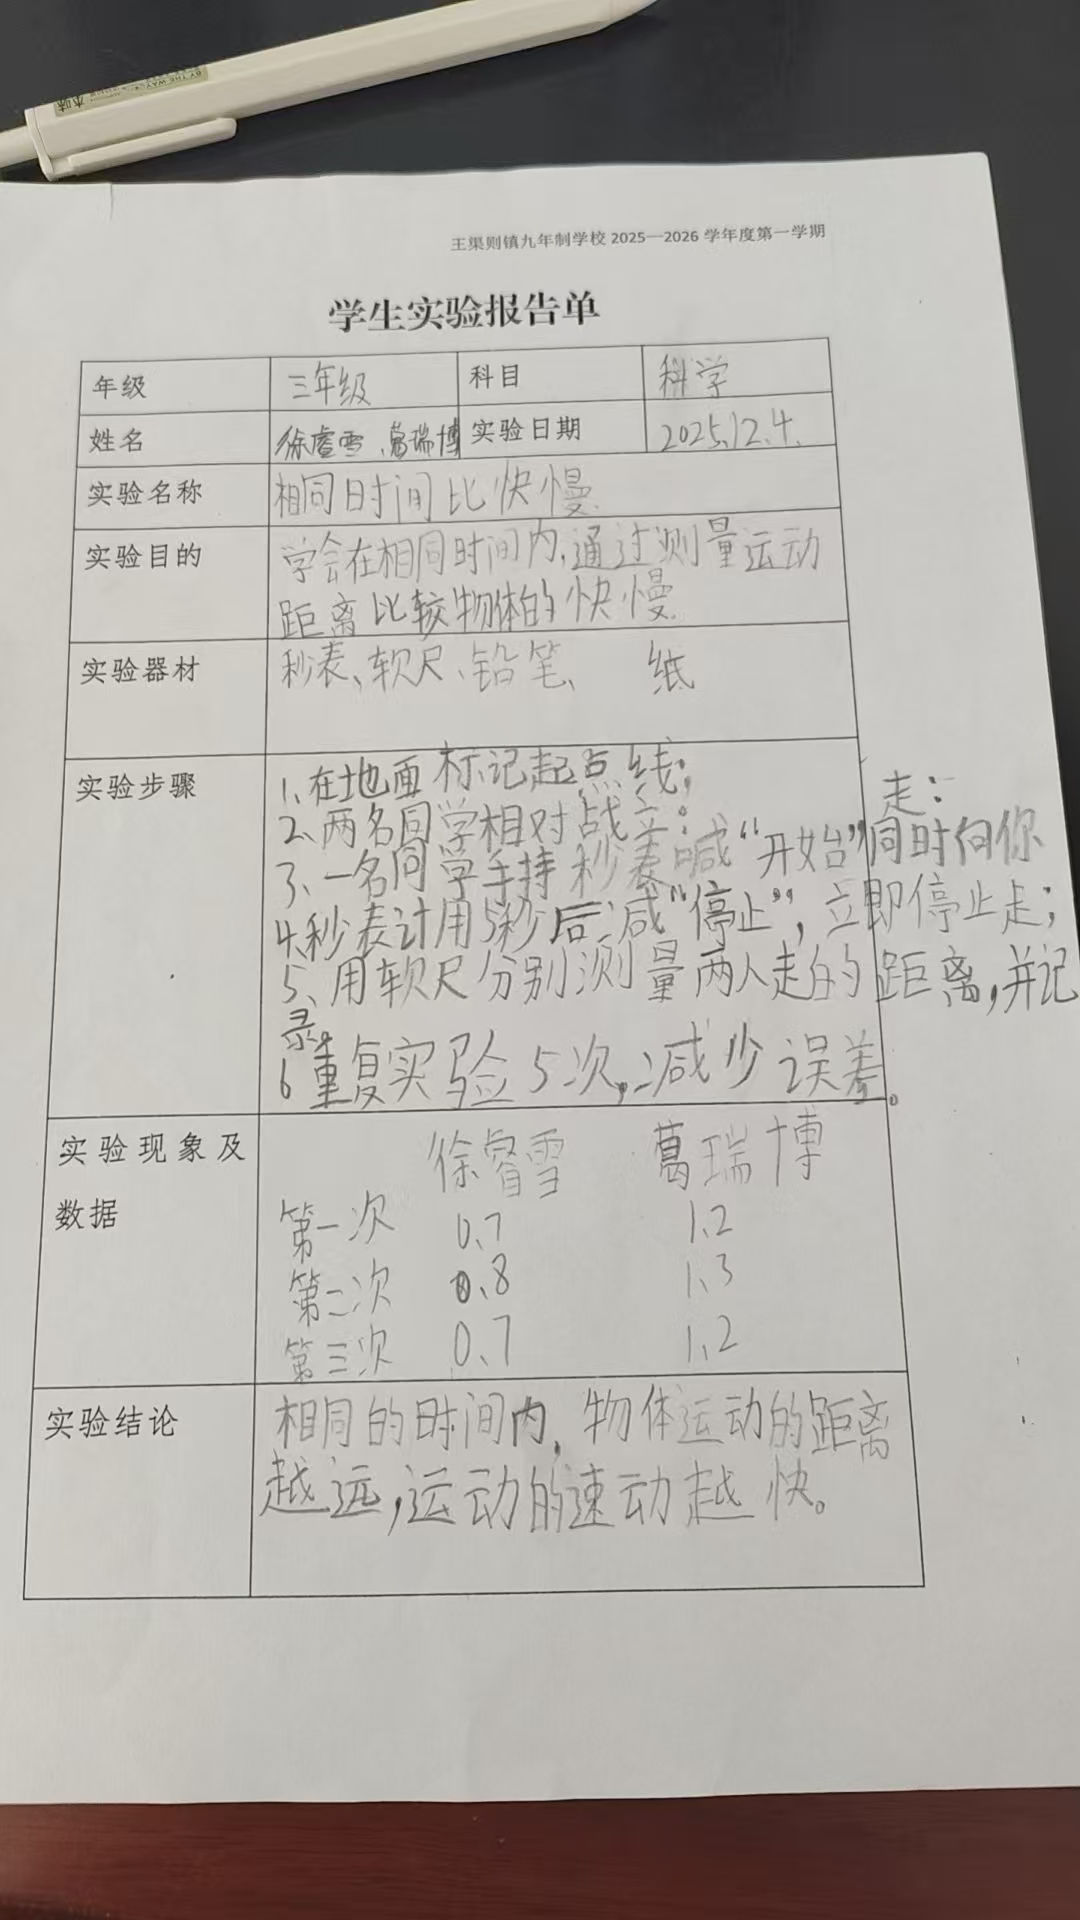 BY THE WAY
本味
王渠则镇九年制学校 2025—2026 学年度第一学期
学生实验报告单
年级 三年级 科目 科学
姓名 徐睿雪、葛瑞博 实验日期 2025.12.4.
实验名称 相同时间比快慢.
实验目的 学会在相同时间内,通过测量运动
距离比较物体的快慢.
实验器材 秒表、软尺、铅笔、 纸
实验步骤 1、在地面标记起点线;
2、两名同学相对战立:
3、一名同学手持秒表喊“开始”同时向你走:
4.秒表计用5秒后减“停止”,立即停止走;
5、用软尺分别测量两人走的距离,并记
录.
6 重复实验5次,减少误差。
实验现象及 徐睿雪 葛瑞博
数据 第一次 0.7 1.2
第二次 0.8 1.3
第三次 0.7 1.2
实验结论 相同的时间内,物体运动的距离
越远,运动的速动越快。